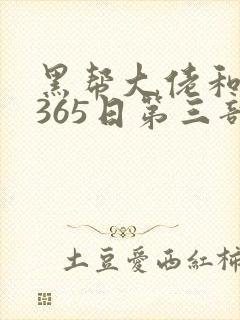 黑帮大佬和
365日第三部
土豆愛西紅柿